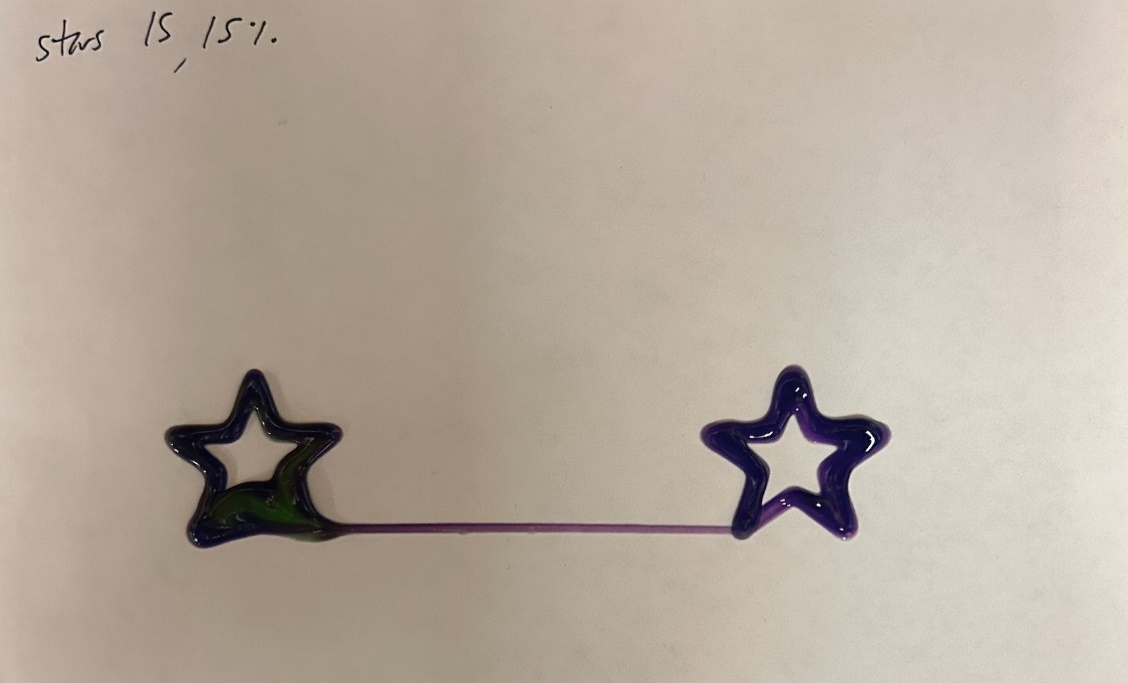 stars 15, 15%.